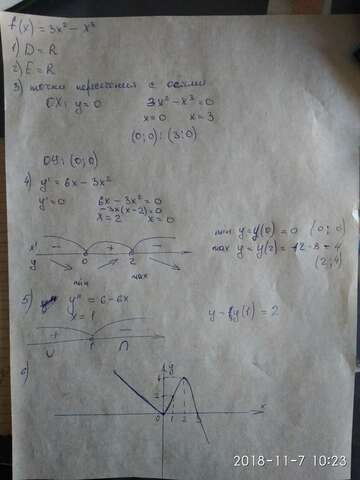 f(x) = 3x² - x³
1) D = R
2) E = R
3) точки пересечения с осями
OX: y = 0   3x² - x³ = 0
x = 0   x = 3
(0;0); (3;0)
OY: (0;0)
4) y' = 6x - 3x²
y' = 0   6x - 3x² = 0
-3x(x-2) = 0
x = 2   x = 0
y' - + -
y 0 2
min max
min y = y(0) = 0   (0;0)
max y = y(2) = 12 - 8 = 4
(2;4)
5) y'' = 6 - 6x
x = 1
+ -
∪ 1 ∩
y(1) = 2
6)
y
0 1 2 3 x
2018-11-7 10:23